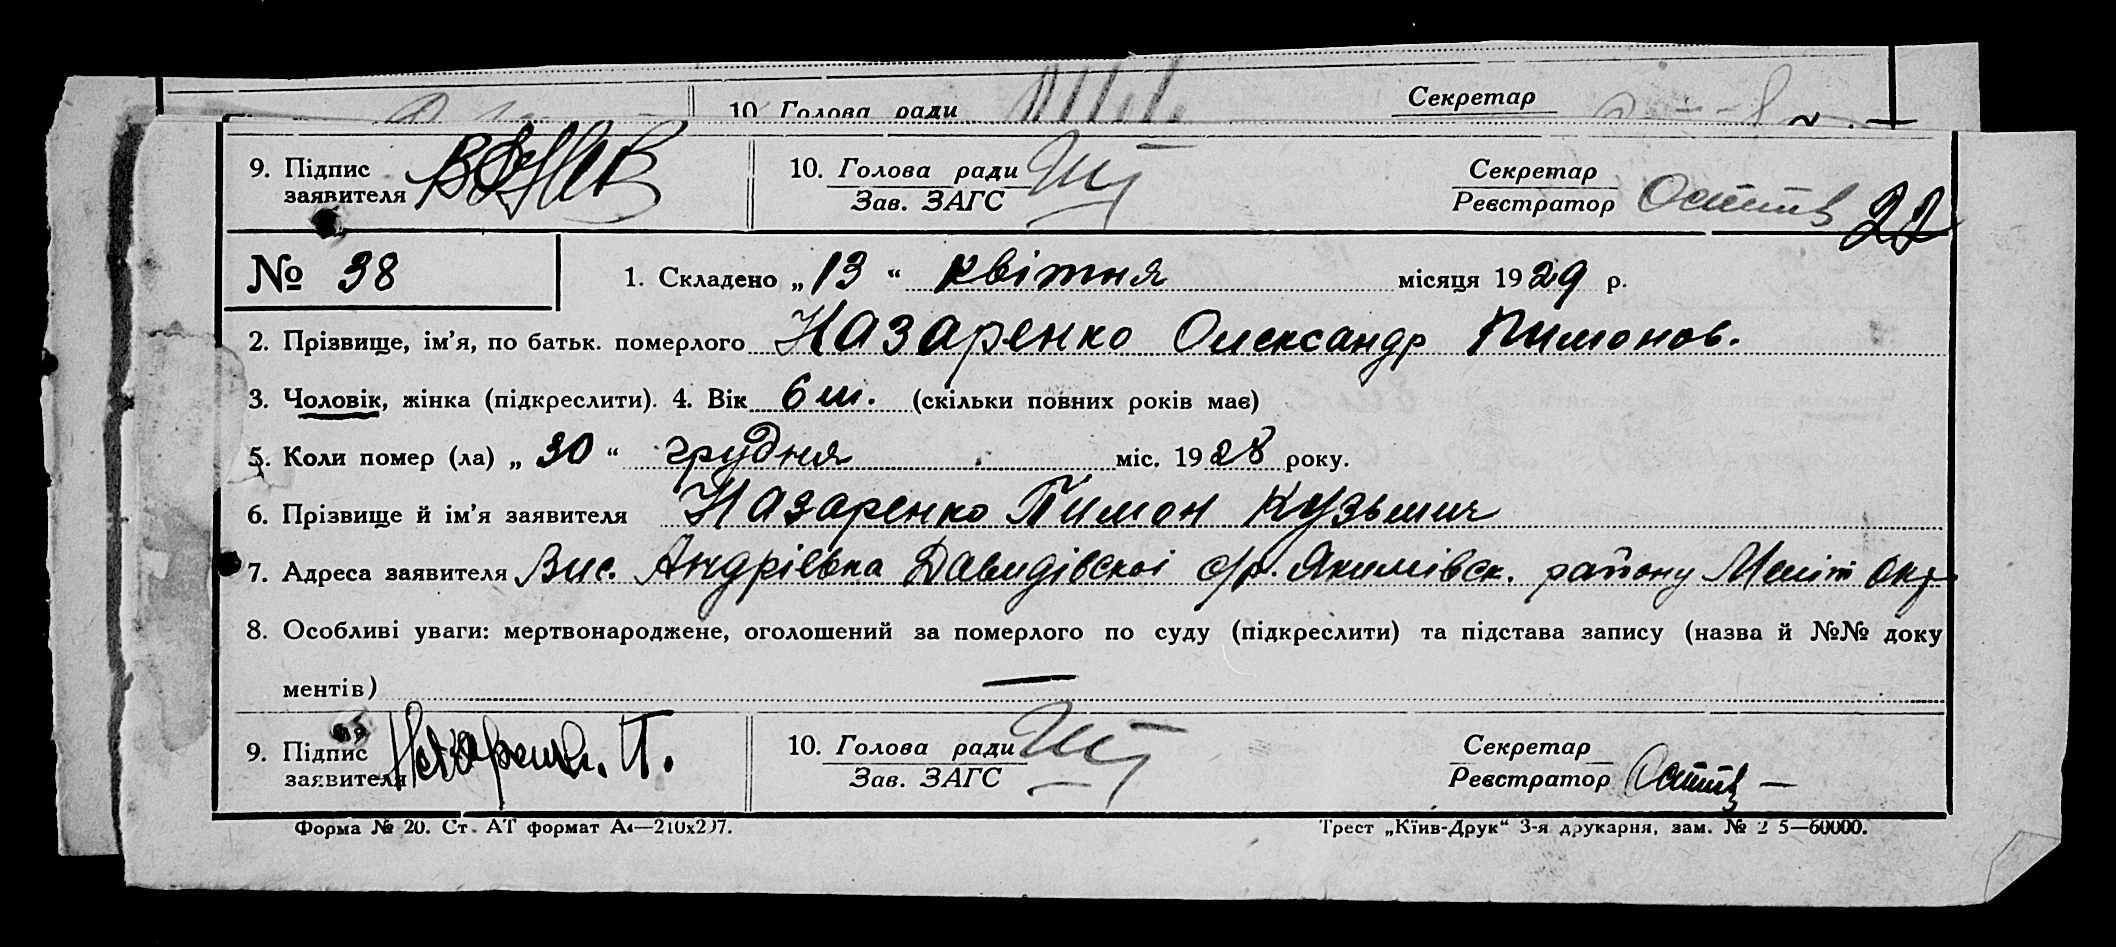 10 Голова ради Секретар
9. Підпис заявителя 10. Голова ради Зав. ЗАГС Секретар Реєстратор
22
№ 38 1. Складено „ 13 “ квітня місяця 1929 р.
2. Прізвище, ім'я, по батьк. померлого Назаренко Олександр Пимонов.
3. Чоловік, жінка (підкреслити). 4. Вік 6 м. (скільки повних років має)
5. Коли помер (ла) „ 30 “ грудня міс. 1928 року.
6. Прізвище й ім'я заявителя Назаренко Пимон Кузьмич
7. Адреса заявителя Вис. Андрієвка Давидівскої с/р. Якимівск. району Меліт Окр.
8. Особливі уваги: мертвонароджене, оголошений за померлого по суду (підкреслити) та підстава запису (назва й №№ доку
ментів) —
9. Підпис заявителя Назаренко. П. 10. Голова ради Зав. ЗАГС Секретар Реєстратор
Форма № 20. Ст. АТ формат А4—210х297. Трест „Київ-Друк“ 3-я друкарня, зам. № 2 5—60000.